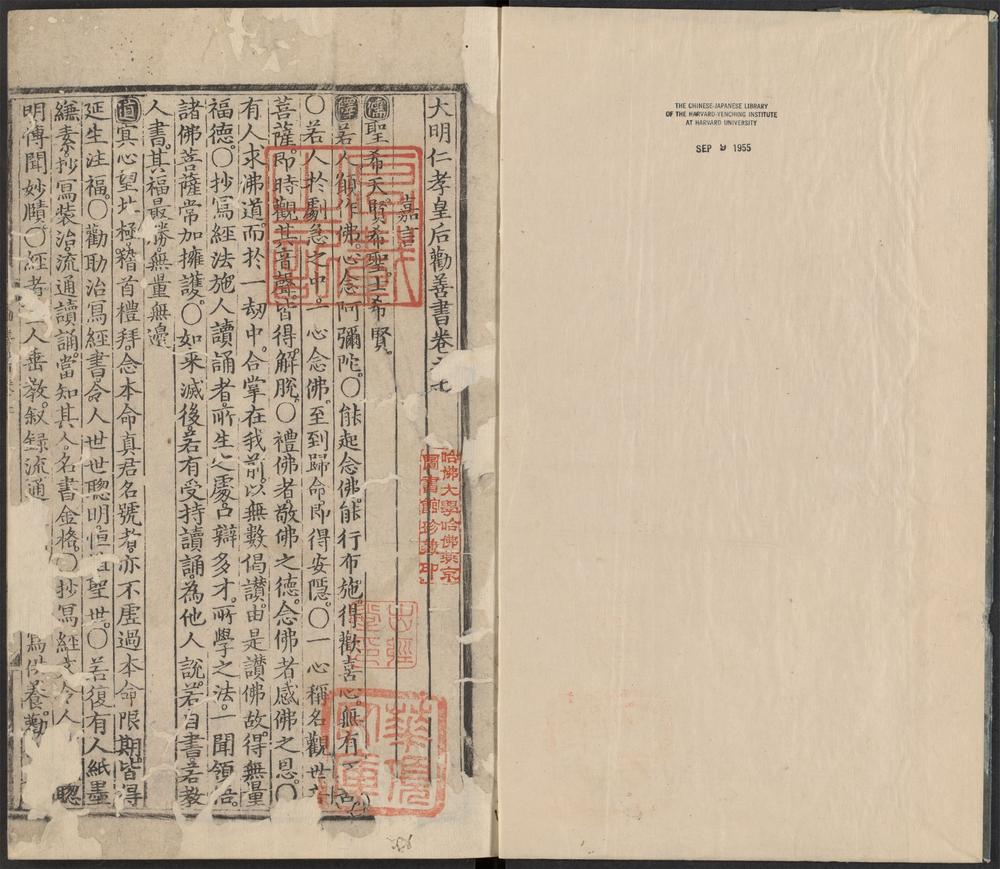 大明仁孝皇后勸善書卷之七
嘉言
儒聖希天。賢希聖。士希賢。
釋若人願作佛。心念阿彌陀。〇能起念佛。能行布施。得歡喜心無有
〇若人於劇急之中。一心念佛。至到歸命即得安隱。〇一心稱名觀世音
菩薩。即時觀其音聲皆得解脫。〇禮佛者。敬佛之德。念佛者感佛之恩。〇
有人求佛道。而於一劫中。合掌在我前。以無數偈讚。由是讚佛故。得無量
福德。〇抄寫經法施人讀誦者。所生之處。口辯多才。所學之法。一聞領悟。
諸佛菩薩常加擁護。〇如来滅後。若有受持讀誦。為他人說。若自書。若教
人書。其福最勝。無量無邊
道冥心望北極。稽首禮拜。念本命真君名號者。亦不虛過本命限期。皆得
延生注福。〇勸助治寫經書。令人世世聰明。恒值聖世。〇若復有人紙墨
縑素。抄寫裝治。流通讀誦。當知其人。名書金格。〇抄寫經文令人 聰
明博聞妙賾。〇經者。人垂教。叙録流通 寫供養勸
哈佛大學哈佛燕京
圖書館珍藏印
THE CHINESE-JAPANESE LIBRARY
OF THE HARVARD-YENCHING INSTITUTE
AT HARVARD UNIVERSITY
SEP 9 1955